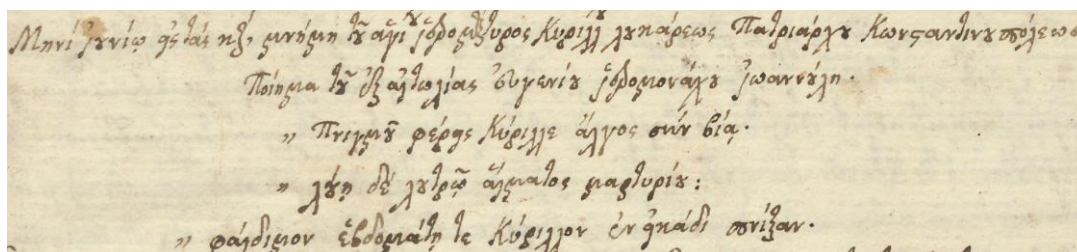 Μηνί ἰουνίῳ εἰς τάς κζ, μνήμη τοῦ ἁγίου ἱερομάρτυρος Κυρίλλου λουκάρεως Πατριάρχου Κωνσταντινουπόλεως
Ποίημα τοῦ ἐξ αἰτωλίας εὐγενίου ἱερομονάχου ἰωαννούλη.
„ Πνιγμοῦ φέρεις Κύριλλε ἄλγος σύν βίᾳ.
„ λούῃ δέ λουτρῷ αἵματος μαρτυρίου:
„ φαίδιμον ἑβδομάτῃ τε Κύριλλον ἐν εἰκάδι πνίξαν.